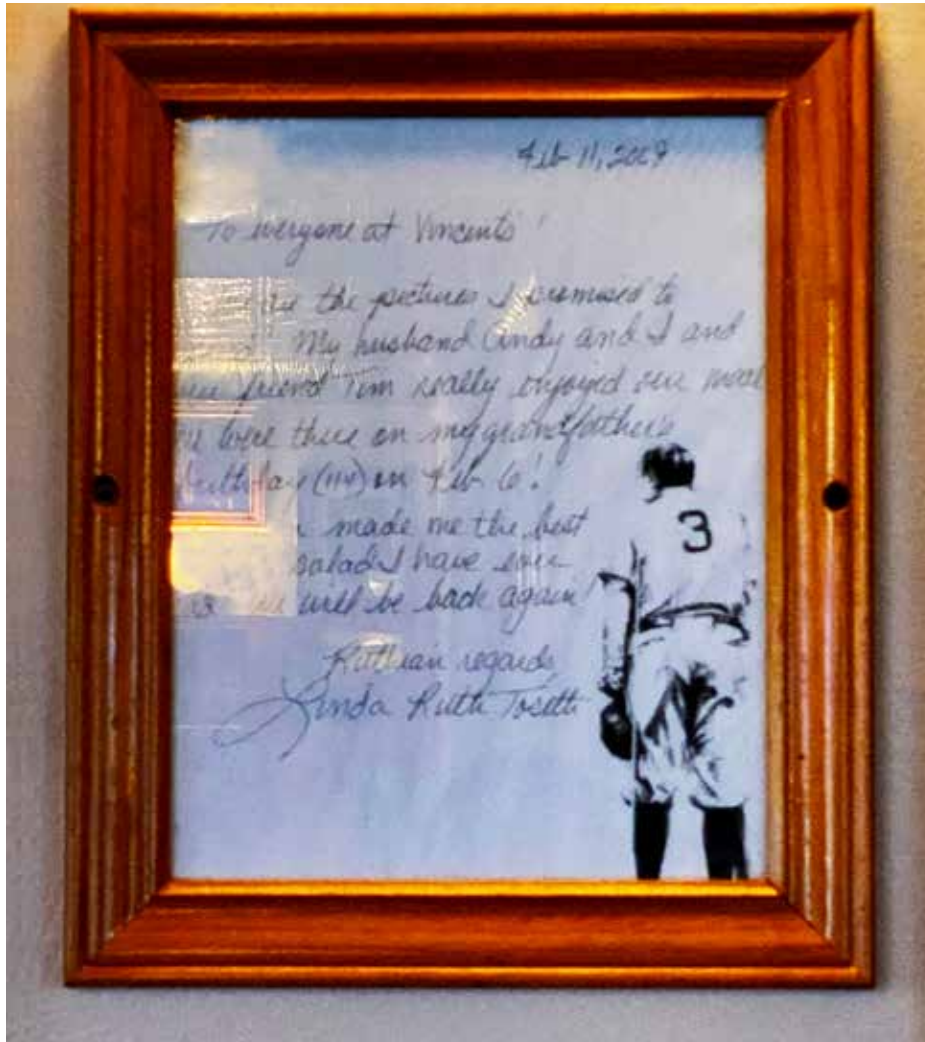 Feb 11, 2009
To everyone at Vincent's!
the pictures I promised to
My husband Andy and I and
our friend Tim really enjoyed our meal
We were there on my grandfather's
birthday (114) on Feb 6!
made me the best
salad I have ever
we will be back again!
Ruthian regards,
Linda Ruth Tosetti
3